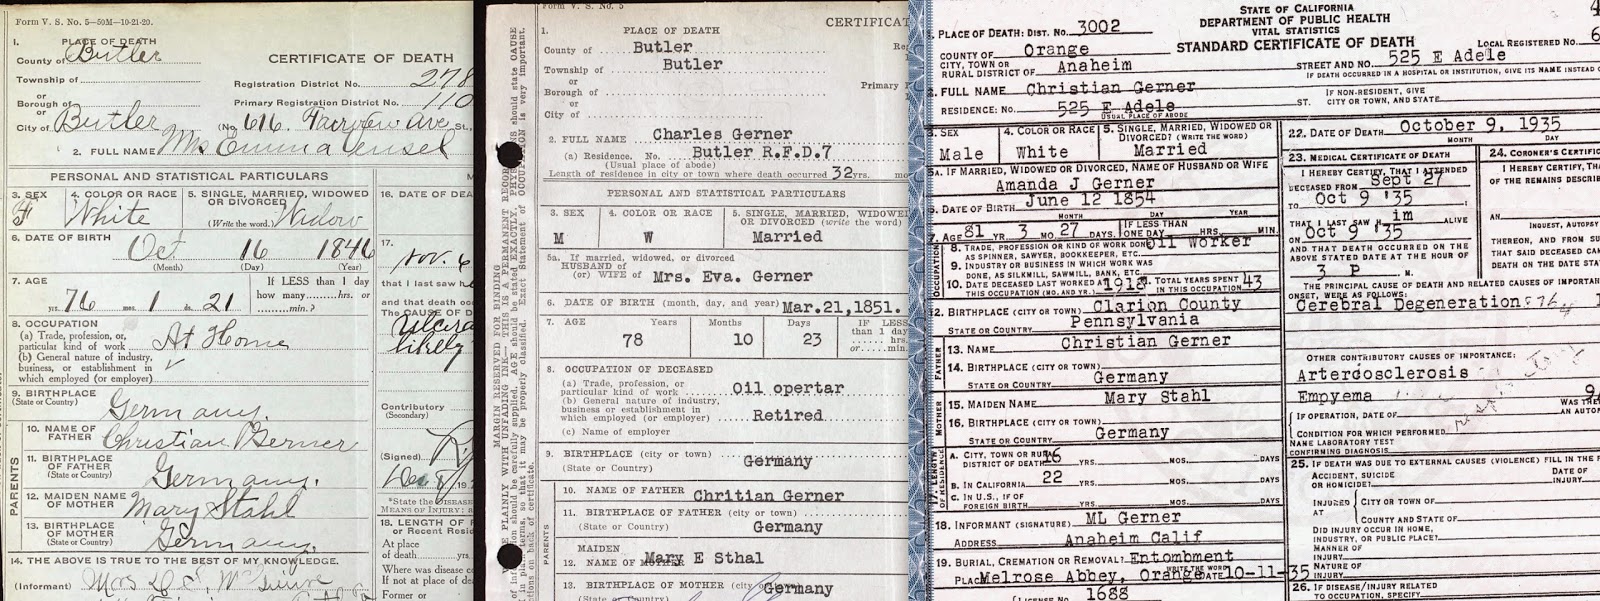 Form V. S. No. 5—50M—10-21-20.
1. PLACE OF DEATH
County of Butler
CERTIFICATE OF DEATH
Township of
or
Registration District No. 278
Borough of
or
Primary Registration District No. 110
City of Butler (No. 616. Fairview Ave St.,
2. FULL NAME Mrs Emma Sensel
PERSONAL AND STATISTICAL PARTICULARS
M
3. SEX
4. COLOR OR RACE
5. SINGLE, MARRIED, WIDOWED
OR DIVORCED
(Write the word.)
F White Widow
16. DATE OF DEA
6. DATE OF BIRTH
Oct 16 1846
(Month) (Day) (Year)
17.
Nov. 6
that I last saw h
7. AGE
76 1 21
If LESS than 1 day
how many........hrs. or
........min.?
and that death oc
The CAUSE OF D
8. OCCUPATION
(a) Trade, profession, or
particular kind of work At Home
(b) General nature of industry,
business, or establishment in
which employed (or employer)
likely
9. BIRTHPLACE
(State or Country)
Germany.
Contributory
(Secondary)
PARENTS
10. NAME OF
FATHER
Christian Gerner
11. BIRTHPLACE
OF FATHER
(State or Country)
Germany.
(Signed)
Dec 8
12. MAIDEN NAME
OF MOTHER
Mary Stahl
*State the DISEASE
MEANS OF INJURY; a
13. BIRTHPLACE
OF MOTHER
(State or Country)
Germany.
18. LENGTH OF R
or Recent Resid
At place
of death yrs.
14. THE ABOVE IS TRUE TO THE BEST OF MY KNOWLEDGE.
(Informant) Mrs
Where was disease c
If not at place of de
Former or
MARGIN RESERVED FOR BINDING
WRITE PLAINLY WITH UNFADING INK—THIS IS A PERMANENT RECORD
Form V. S. No. 5
CERTIFICAT
1. PLACE OF DEATH
County of Butler
Township of Butler
or
Borough of
or
City of
Primary
2. FULL NAME Charles Gerner
(a) Residence. No. Butler R.F.D.7
(Usual place of abode)
Length of residence in city or town where death occurred 32 yrs.
PERSONAL AND STATISTICAL PARTICULARS
3. SEX
4. COLOR OR RACE
5. SINGLE, MARRIED, WIDOWED
OR DIVORCED (write the word)
M W Married
5a. If married, widowed, or divorced
HUSBAND of
(or) WIFE of Mrs. Eva. Gerner
6. DATE OF BIRTH (month, day, and year) Mar.21,1851.
7. AGE Years Months Days
78 10 23
IF LESS
than 1 day
hrs.
or......min.
8. OCCUPATION OF DECEASED
(a) Trade, profession, or
particular kind of work Oil opertar
(b) General nature of industry,
business or establishment in
which employed (or employer) Retired
(c) Name of employer
9. BIRTHPLACE (city or town)
(State or Country) Germany
PARENTS
10. NAME OF FATHER Chritian Gerner
11. BIRTHPLACE OF FATHER (city or town)
(State or Country) Germany
MAIDEN
12. NAME OF MOTHER Mary E Sthal
13. BIRTHPLACE OF MOTHER (city or town)
(State or Country) Germany
STATE OF CALIFORNIA
DEPARTMENT OF PUBLIC HEALTH
VITAL STATISTICS
STANDARD CERTIFICATE OF DEATH
1. PLACE OF DEATH: DIST. NO. 3002
LOCAL REGISTERED NO. 6
COUNTY OF Orange
CITY, TOWN OR
RURAL DISTRICT OF Anaheim
STREET AND NO. 525 E Adele
IF DEATH OCCURRED IN A HOSPITAL OR INSTITUTION, GIVE ITS NAME INSTEAD O
2. FULL NAME Christian Gerner
RESIDENCE: NO. 525 E Adele ST.
USUAL PLACE OF ABODE
IF NON-RESIDENT, GIVE
CITY OR TOWN, AND STATE
3. SEX
Male
4. COLOR OR RACE
White
5. SINGLE, MARRIED, WIDOWED OR
DIVORCED? (WRITE THE WORD)
Married
5A. IF MARRIED, WIDOWED OR DIVORCED, NAME OF HUSBAND OR WIFE
Amanda J Gerner
6. DATE OF BIRTH June 12 1854
MONTH DAY YEAR
7. AGE 81 YR. 3 MO. 27 DAYS.
IF LESS THAN
ONE DAY HRS. MIN.
OCCUPATION
8. TRADE, PROFESSION OR KIND OF WORK DONE
AS SPINNER, SAWYER, BOOKKEEPER, ETC.
Oil Worker
9. INDUSTRY OR BUSINESS IN WHICH WORK WAS
DONE, AS SILKMILL, SAWMILL, BANK, ETC.
10. DATE DECEASED LAST WORKED AT
THIS OCCUPATION (MO. AND YR.) 1918
11. TOTAL YEARS SPENT
IN THIS OCCUPATION 43
12. BIRTHPLACE (CITY OR TOWN) Clarion County
STATE OR COUNTRY Pennsylvania
FATHER
13. NAME Christian Gerner
14. BIRTHPLACE (CITY OR TOWN)
STATE OR COUNTRY Germany
MOTHER
15. MAIDEN NAME Mary Stahl
16. BIRTHPLACE (CITY OR TOWN)
STATE OR COUNTRY Germany
17. LENGTH OF RESIDENCE
A. CITY, TOWN OR RURAL
DISTRICT OF DEATH 16 YRS. MOS. DAYS
B. IN CALIFORNIA 22 YRS. MOS. DAYS
C. IN U.S., IF OF
FOREIGN BIRTH YRS. MOS. DAYS
18. INFORMANT (SIGNATURE) ML Gerner
ADDRESS Anaheim Calif
19. BURIAL, CREMATION OR REMOVAL? Entombment
WRITE THE WORD
PLACE Melrose Abbey, Orange DATE 10-11-35
LICENSE NO. 1688
22. DATE OF DEATH October 9, 1935
MONTH DAY
23. MEDICAL CERTIFICATE OF DEATH
I HEREBY CERTIFY, THAT I ATTENDED
DECEASED FROM Sept 27
TO Oct 9 '35
THAT I LAST SAW H im ALIVE
ON Oct 9 '35
AND THAT DEATH OCCURRED ON THE
ABOVE STATED DATE AT THE HOUR OF
3 P M.
24. CORONER'S CERTIFIC
I HEREBY CERTIFY, THAT
OF THE REMAINS DESCRIB
AN
INQUEST, AUTOPSY
THEREON, AND FROM SU
THAT SAID DECEASED CAM
DEATH ON THE DATE STA
THE PRINCIPAL CAUSE OF DEATH AND RELATED CAUSES OF IMPORTA
ONSET, WERE AS FOLLOWS:
Cerebral Degeneration
OTHER CONTRIBUTORY CAUSES OF IMPORTANCE:
Arterdosclerosis
Empyema
IF OPERATION, DATE OF
WAS THE
AN AUTOP
CONDITION FOR WHICH PERFORMED
NAME LABORATORY TEST
CONFIRMING DIAGNOSIS
25. IF DEATH WAS DUE TO EXTERNAL CAUSES (VIOLENCE) FILL IN THE F
ACCIDENT, SUICIDE
OR HOMICIDE?
DATE OF
INJURY
INJURED AT
CITY OR TOWN OF
COUNTY AND STATE OF
DID INJURY OCCUR IN HOME,
INDUSTRY, OR PUBLIC PLACE?
MANNER OF
INJURY
NATURE OF
INJURY
26. IF DISEASE/INJURY RELATED
TO OCCUPATION, SPECIFY